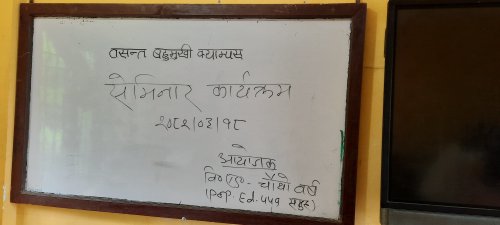 वसन्त बहुमुखी क्याम्पस
सेमिनार कार्यक्रम
२०८१/०३/१८
आयोजक
वि०एड०- चौथो वर्ष
(Pop. Ed. ५५१ समूह)